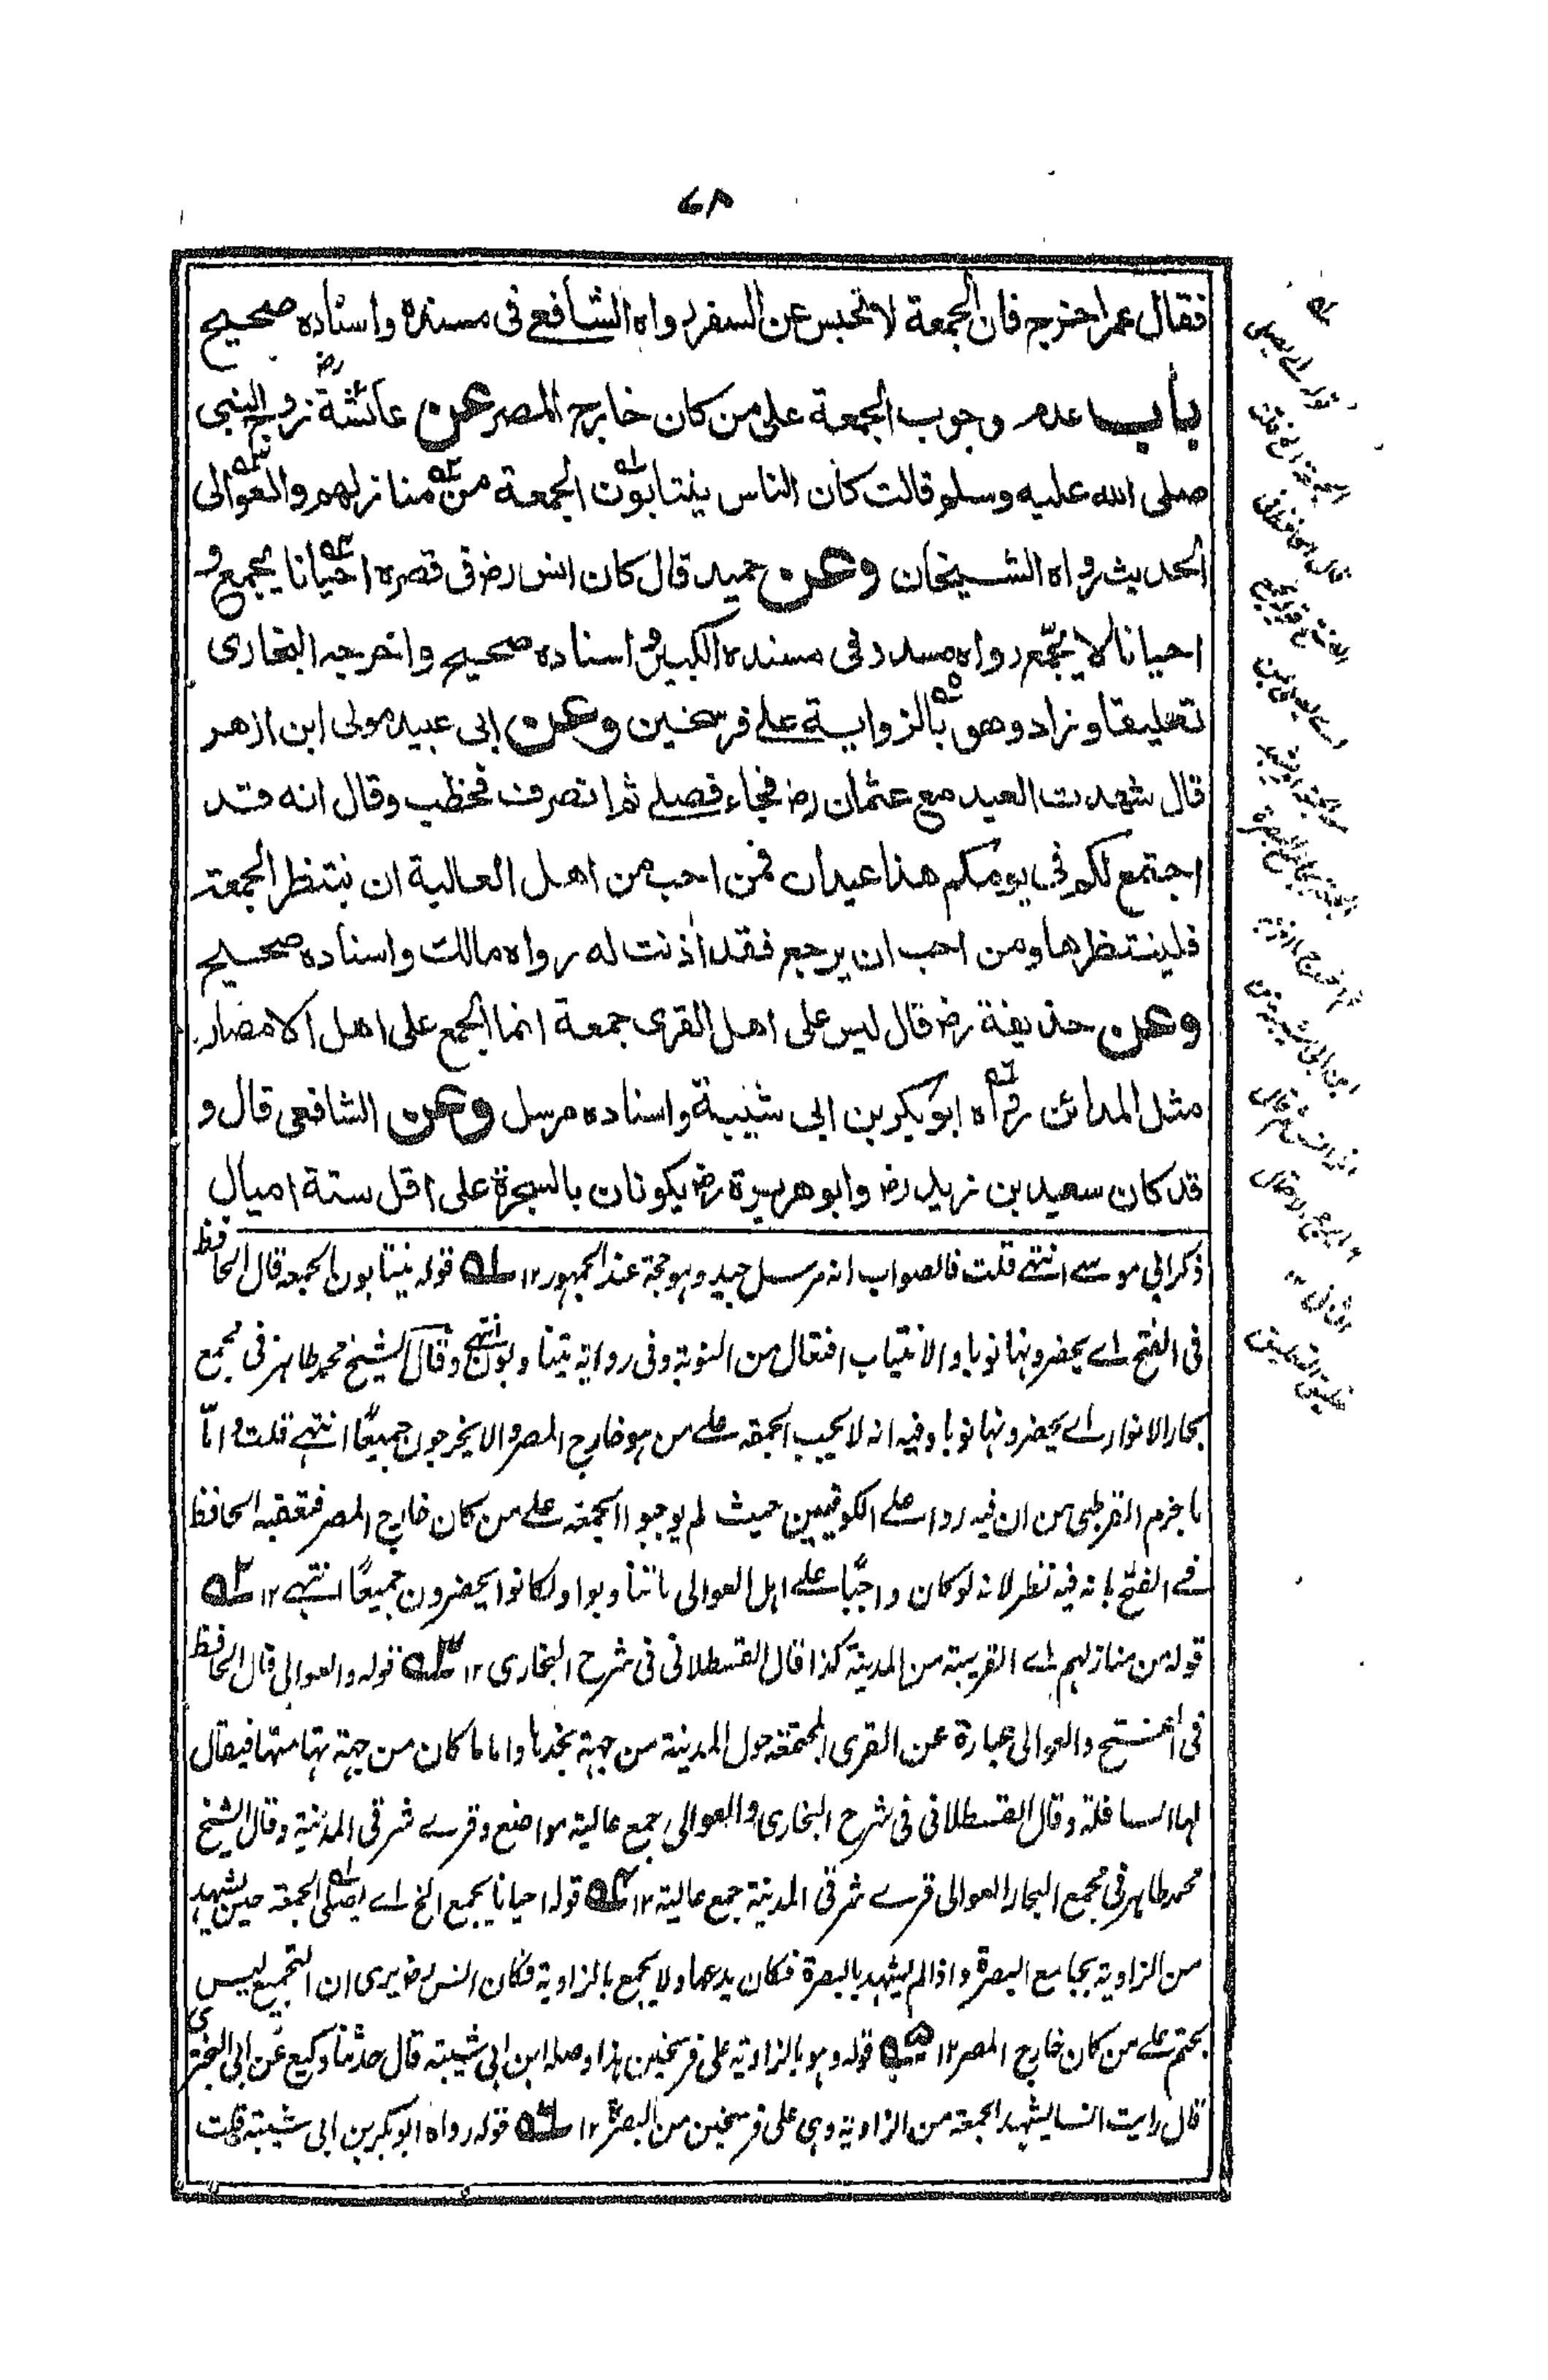 ٧٨
فقال عمر اخرج فان الجمعة لا تحبس عن السفر رواه الشافعى فى مسنده واسناده صحيح
باب عدم وجوب الجمعة على من كان خارج المصر عن عائشة رض زوج النبى
صلى الله عليه وسلم قالت كان الناس ينتابون الجمعة من منازلهم والعوالى
الحديث رواه الشيخان وعن حميد قال كان انس رض فى قصره احيانا يجمع و
احيانا لا يجمّع رواه مسدد فى مسنده الكبير واسناده صحيح واخرجه البخارى
تعليقا وزاد وهو بالزواية على فرسخين وعن ابى عبيد مولى ابن ازهر
قال شهدت العيد مع عثمان رض فجاء فصلى ثم انصرف فخطب وقال انه قد
اجتمع لكم فى يومكم هذا عيدان فمن احب من اهل العالية ان ينتظر الجمعة
فلينتظرها ومن احب ان يرجع فقد اذنت له رواه مالك واسناده صحيح
وعن حذيفة رض قال ليس على اهل القرى جمعة انما الجمع على اهل الامصار
مثل المدائن رواه ابو بكر بن ابى شيبة واسناده مرسل وعن الشافعى قال و
قد كان سعيد بن زيد رض وابو هريرة رض يكونان بالسجرة على اقل ستة اميال
ذكر ابى موسى انتهى قلت فالصواب انه مرسل جيد وهو حجة عند الجمهور ١٢ ل‍ه قوله ينتابون الجمعة قال الحافظ
فى الفتح اى يحضرونها نوبا والانتياب افتعال من النوبة وفى رواية يتناوبون انتهى وقال الشيخ محمد طاهر فى مجمع
بحار الانوار اى يحضرونها نوبا وفيه انه لا يجب الجمعة على من هو خارج المصر والا يخرجون جميعًا انتهى قلت و امّا
ما جزم القرطبى من ان فيه ردا على الكوفيين حيث لم يوجبوا الجمعة على من كان خارج المصر فتعقبه الحافظ
فى الفتح بانه فيه نظر لانه لو كان واجبًا على اهل العوالى ما تناوبوا ولكانوا يحضرون جميعًا انتهى ١٢ ٢ه
قوله من منازلهم اى القريبة من المدينة كذا قال القسطلانى فى شرح البخارى ١٢ ٣ه قوله والعوالى قال الحافظ
فى الفتح والعوالى عبارة عن القرى المجتمعة حول المدينة من جهة نجدها واما ما كان من جهة تهامتها فيقال
لها السافلة وقال القسطلانى فى شرح البخارى والعوالى جمع عالية مواضع وقرى شرقى المدينة وقال الشيخ
محمد طاهر فى مجمع البحار العوالى قرى شرقى المدينة جمع عالية ١٢ ٤ه قوله احيانا يجمع الخ اى يصلى الجمعة حين يشهد
من الزاوية بجامع البصرة واذا لم يشهد بالبصرة فكان يدعها ولا يجمع بالزاوية فكان انس رض يرى ان التجميع ليس
بحتم على من كان خارج المصر ١٢ ٥ه قوله وهو بالزاوية على فرسخين هذا وصله ابن ابى شيبة قال حدثنا وكيع عن ابى البخترى
قال رايت انسا يشهد الجمعة من الزاوية وهى على فرسخين من البصرة ١٢ ٦ه قوله رواه ابو بكر بن ابى شيبة قلت